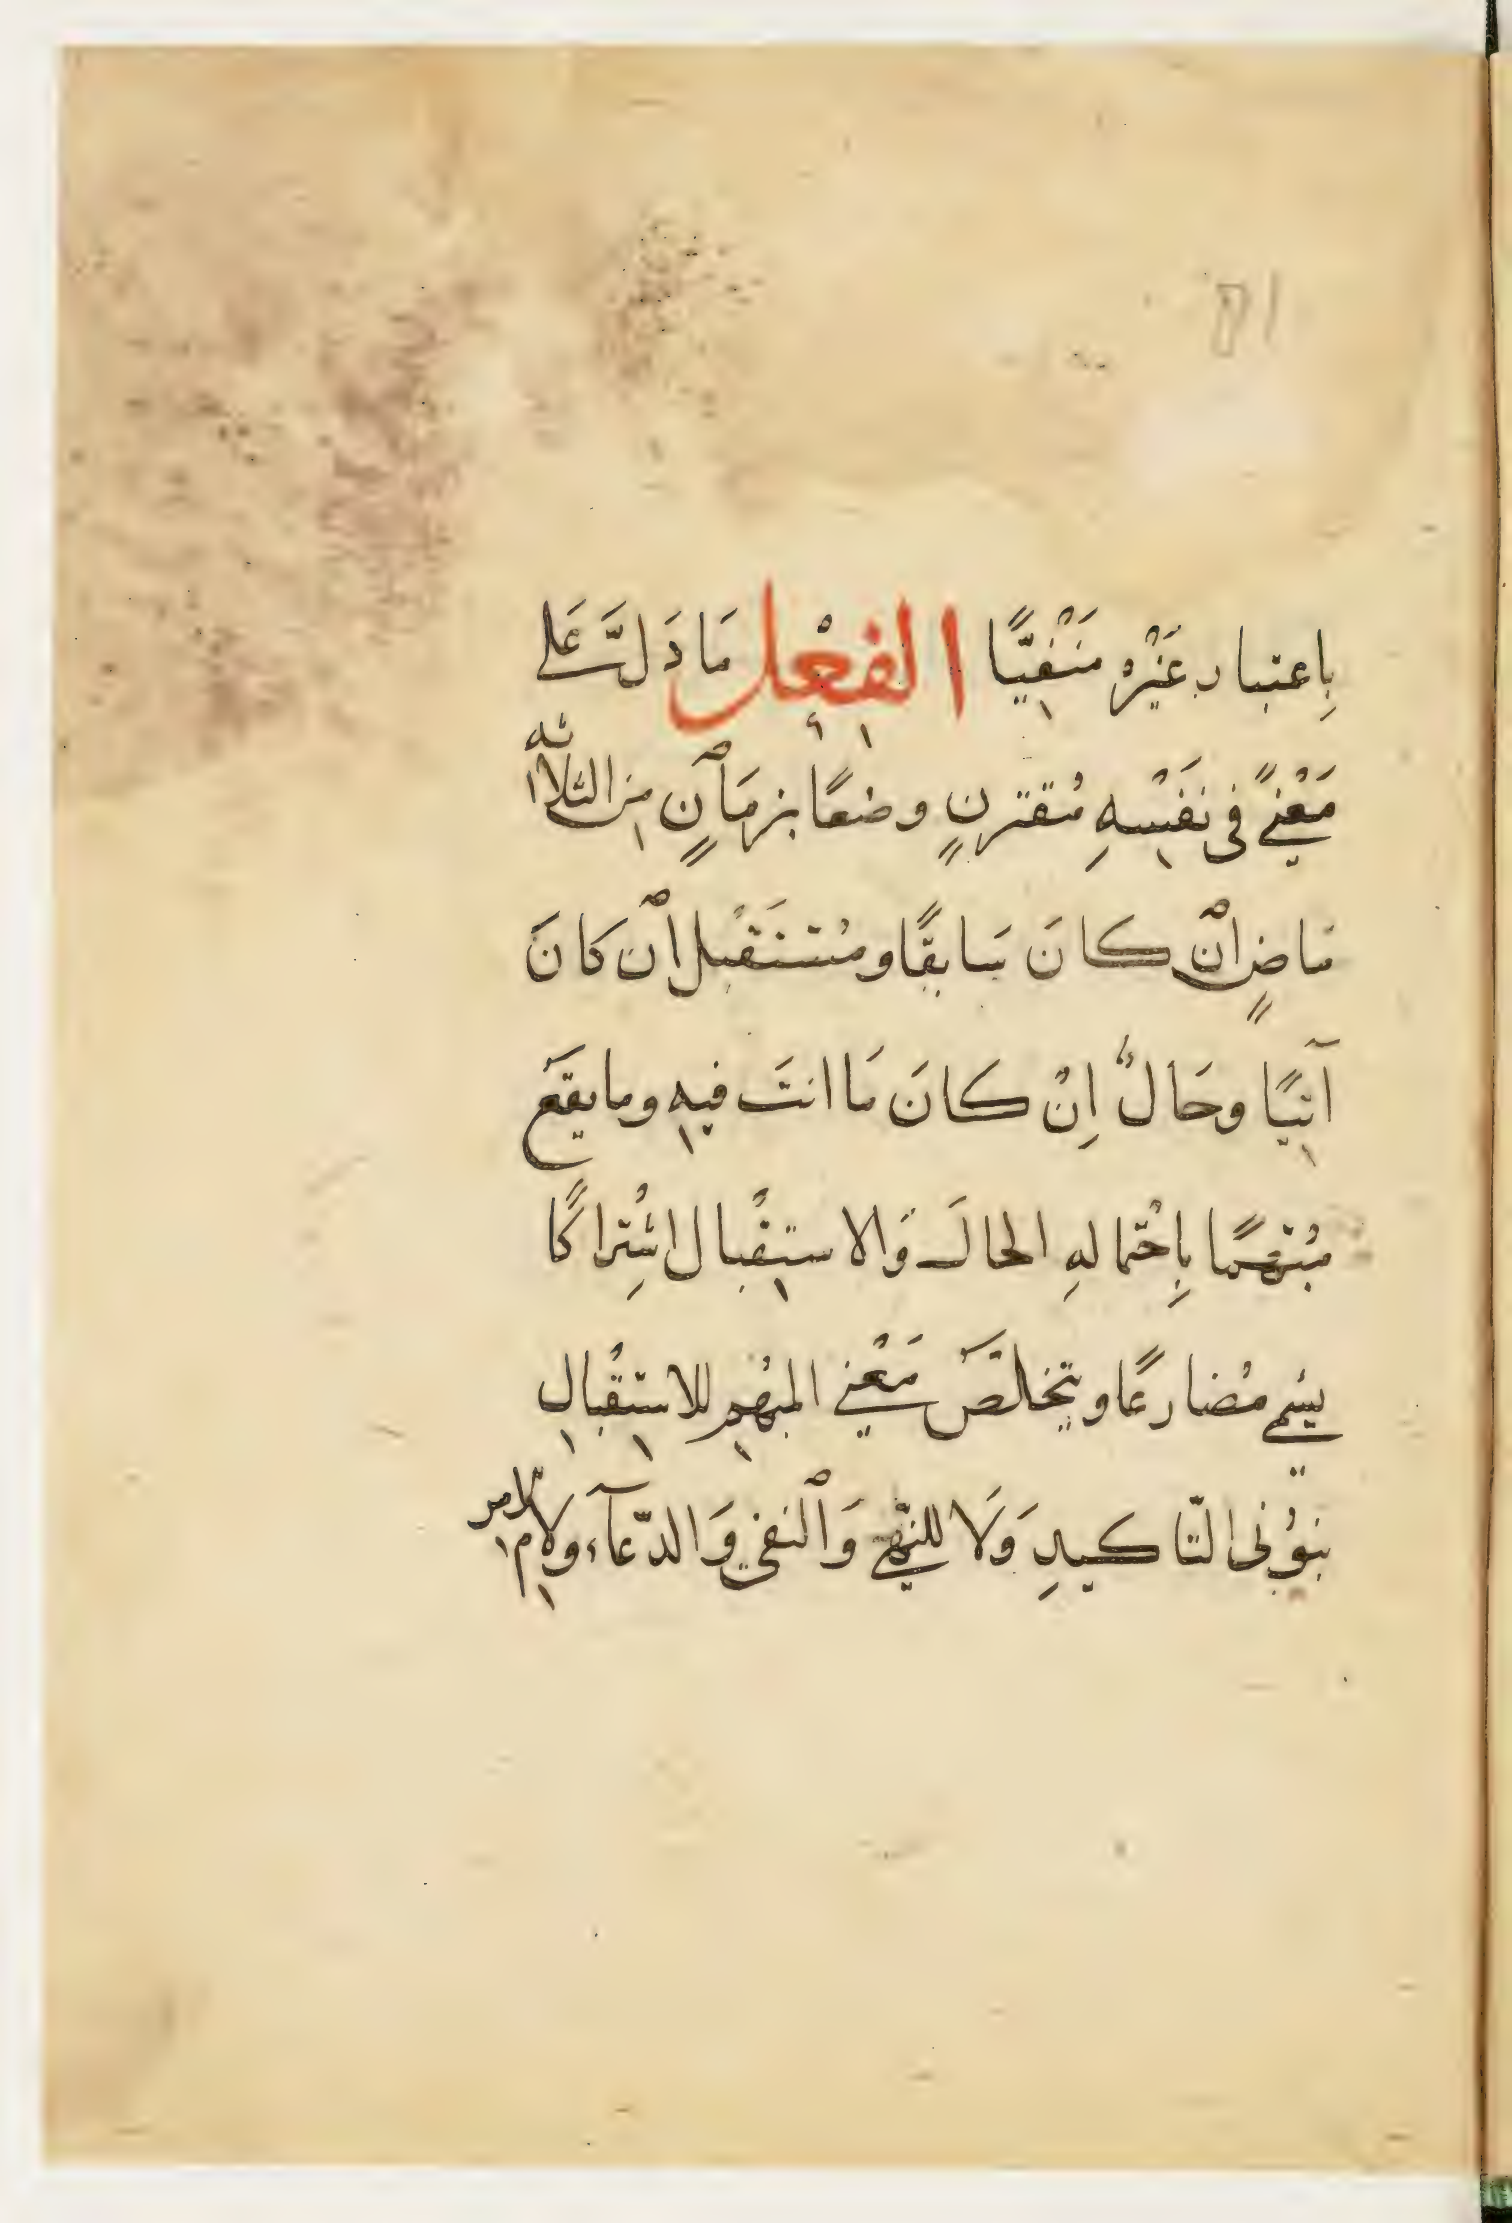 بِاعتبار غَيْرِه مَنْفِيًّا الفِعْل مَا دَلَّ عَلى
مَعْنًى فى نَفْسِهِ مُقترنٍ وضعًا بزمَانٍ من الثلاثه
مَاضٍ انْ كانَ سَابقًا ومُسْتَقْبل انْ كانَ
آتيًا وحَالٌ اِنْ كانَ مَا انتَ فيهِ وما يقَع
مُبْهمًا بِاِحْتمالهِ الحالَ وَالاستقْبال اشْتِراكًا
يسُمى مُضارعًا ويتخلّصَ مَعْنى المبْهم للاستقْبالِ
بنوُنى التّاكيدِ وَلَا للنّهى وَالْنفى وَالدّعآء ولام الامر